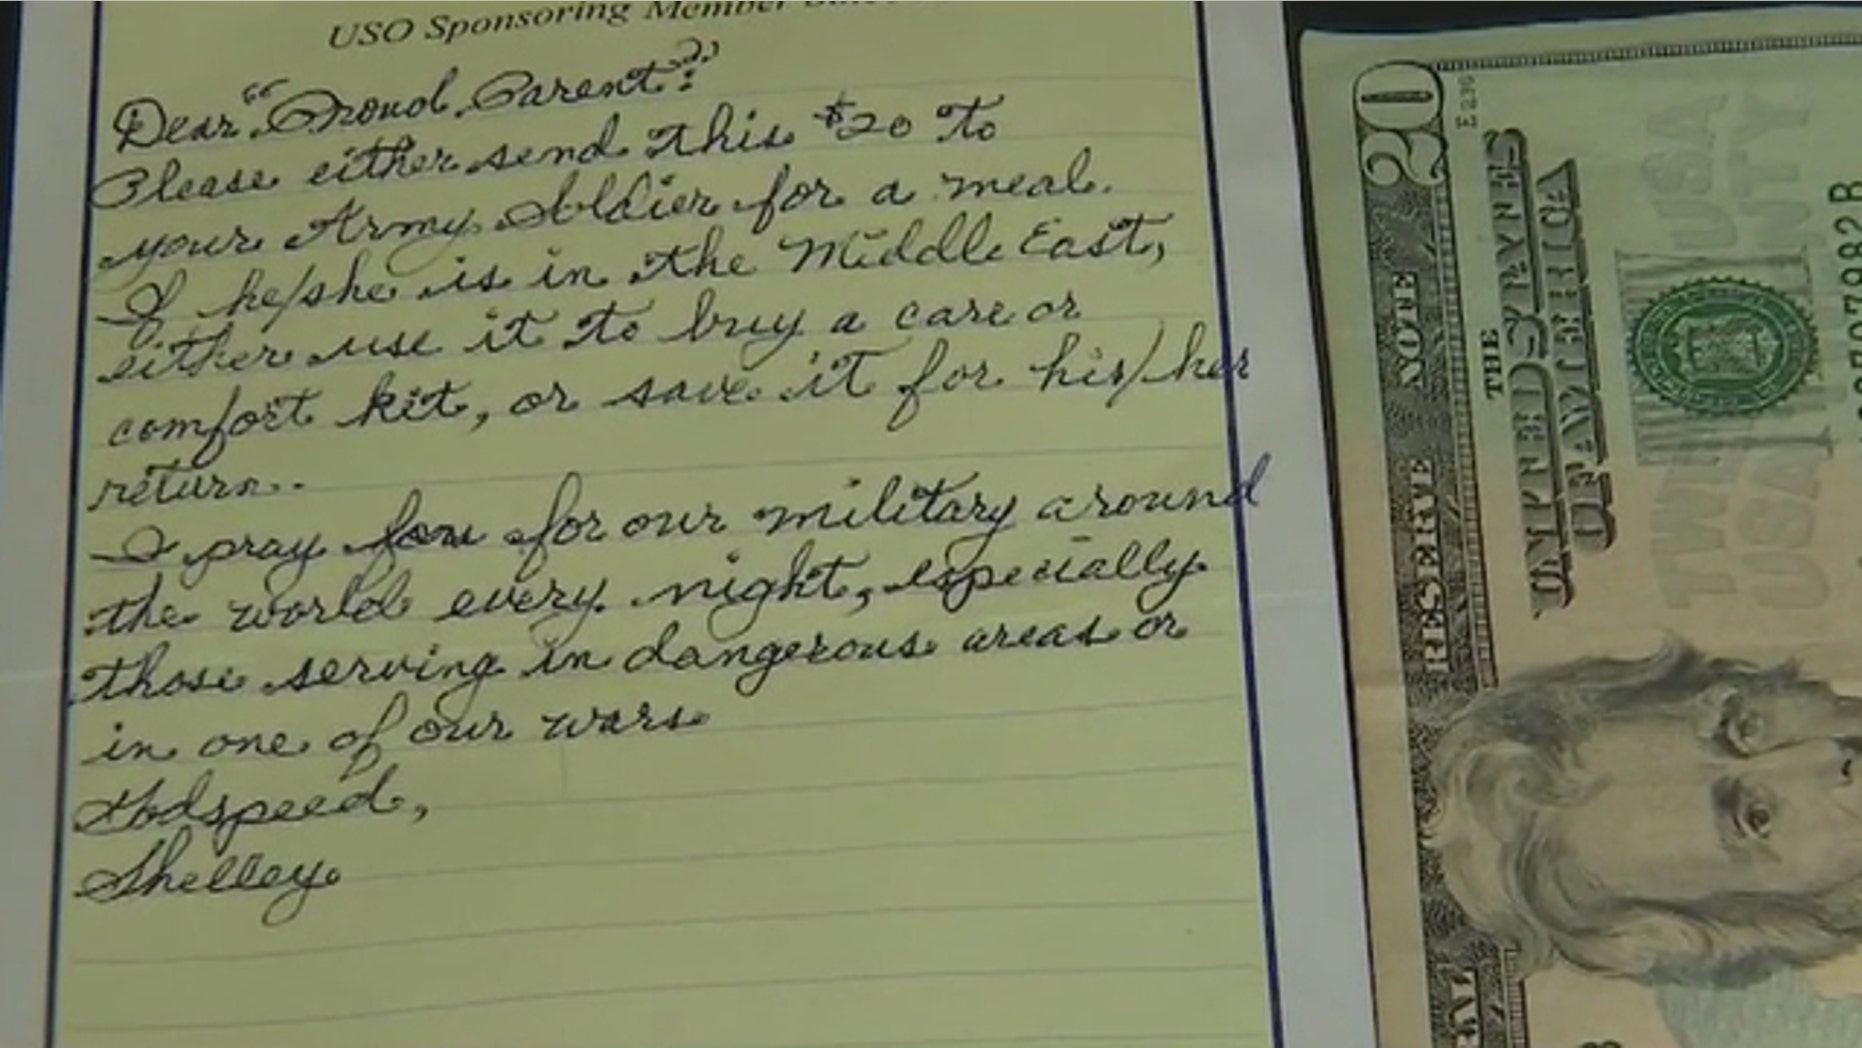 USO Sponsoring Member
Dear "Proud Parent":
Please either send this $20 to
your Army Soldier for a meal.
If he/she is in the Middle East,
either use it to buy a care or
comfort kit, or save it for his/her
return.
I pray for our military around
the world every night, especially
those serving in dangerous areas or
in one of our wars
Godspeed,
Shelley
20
E 236
RESERVE NOTE
THE
UNITED STATES
OF AMERICA
USA
TWENTY
USA